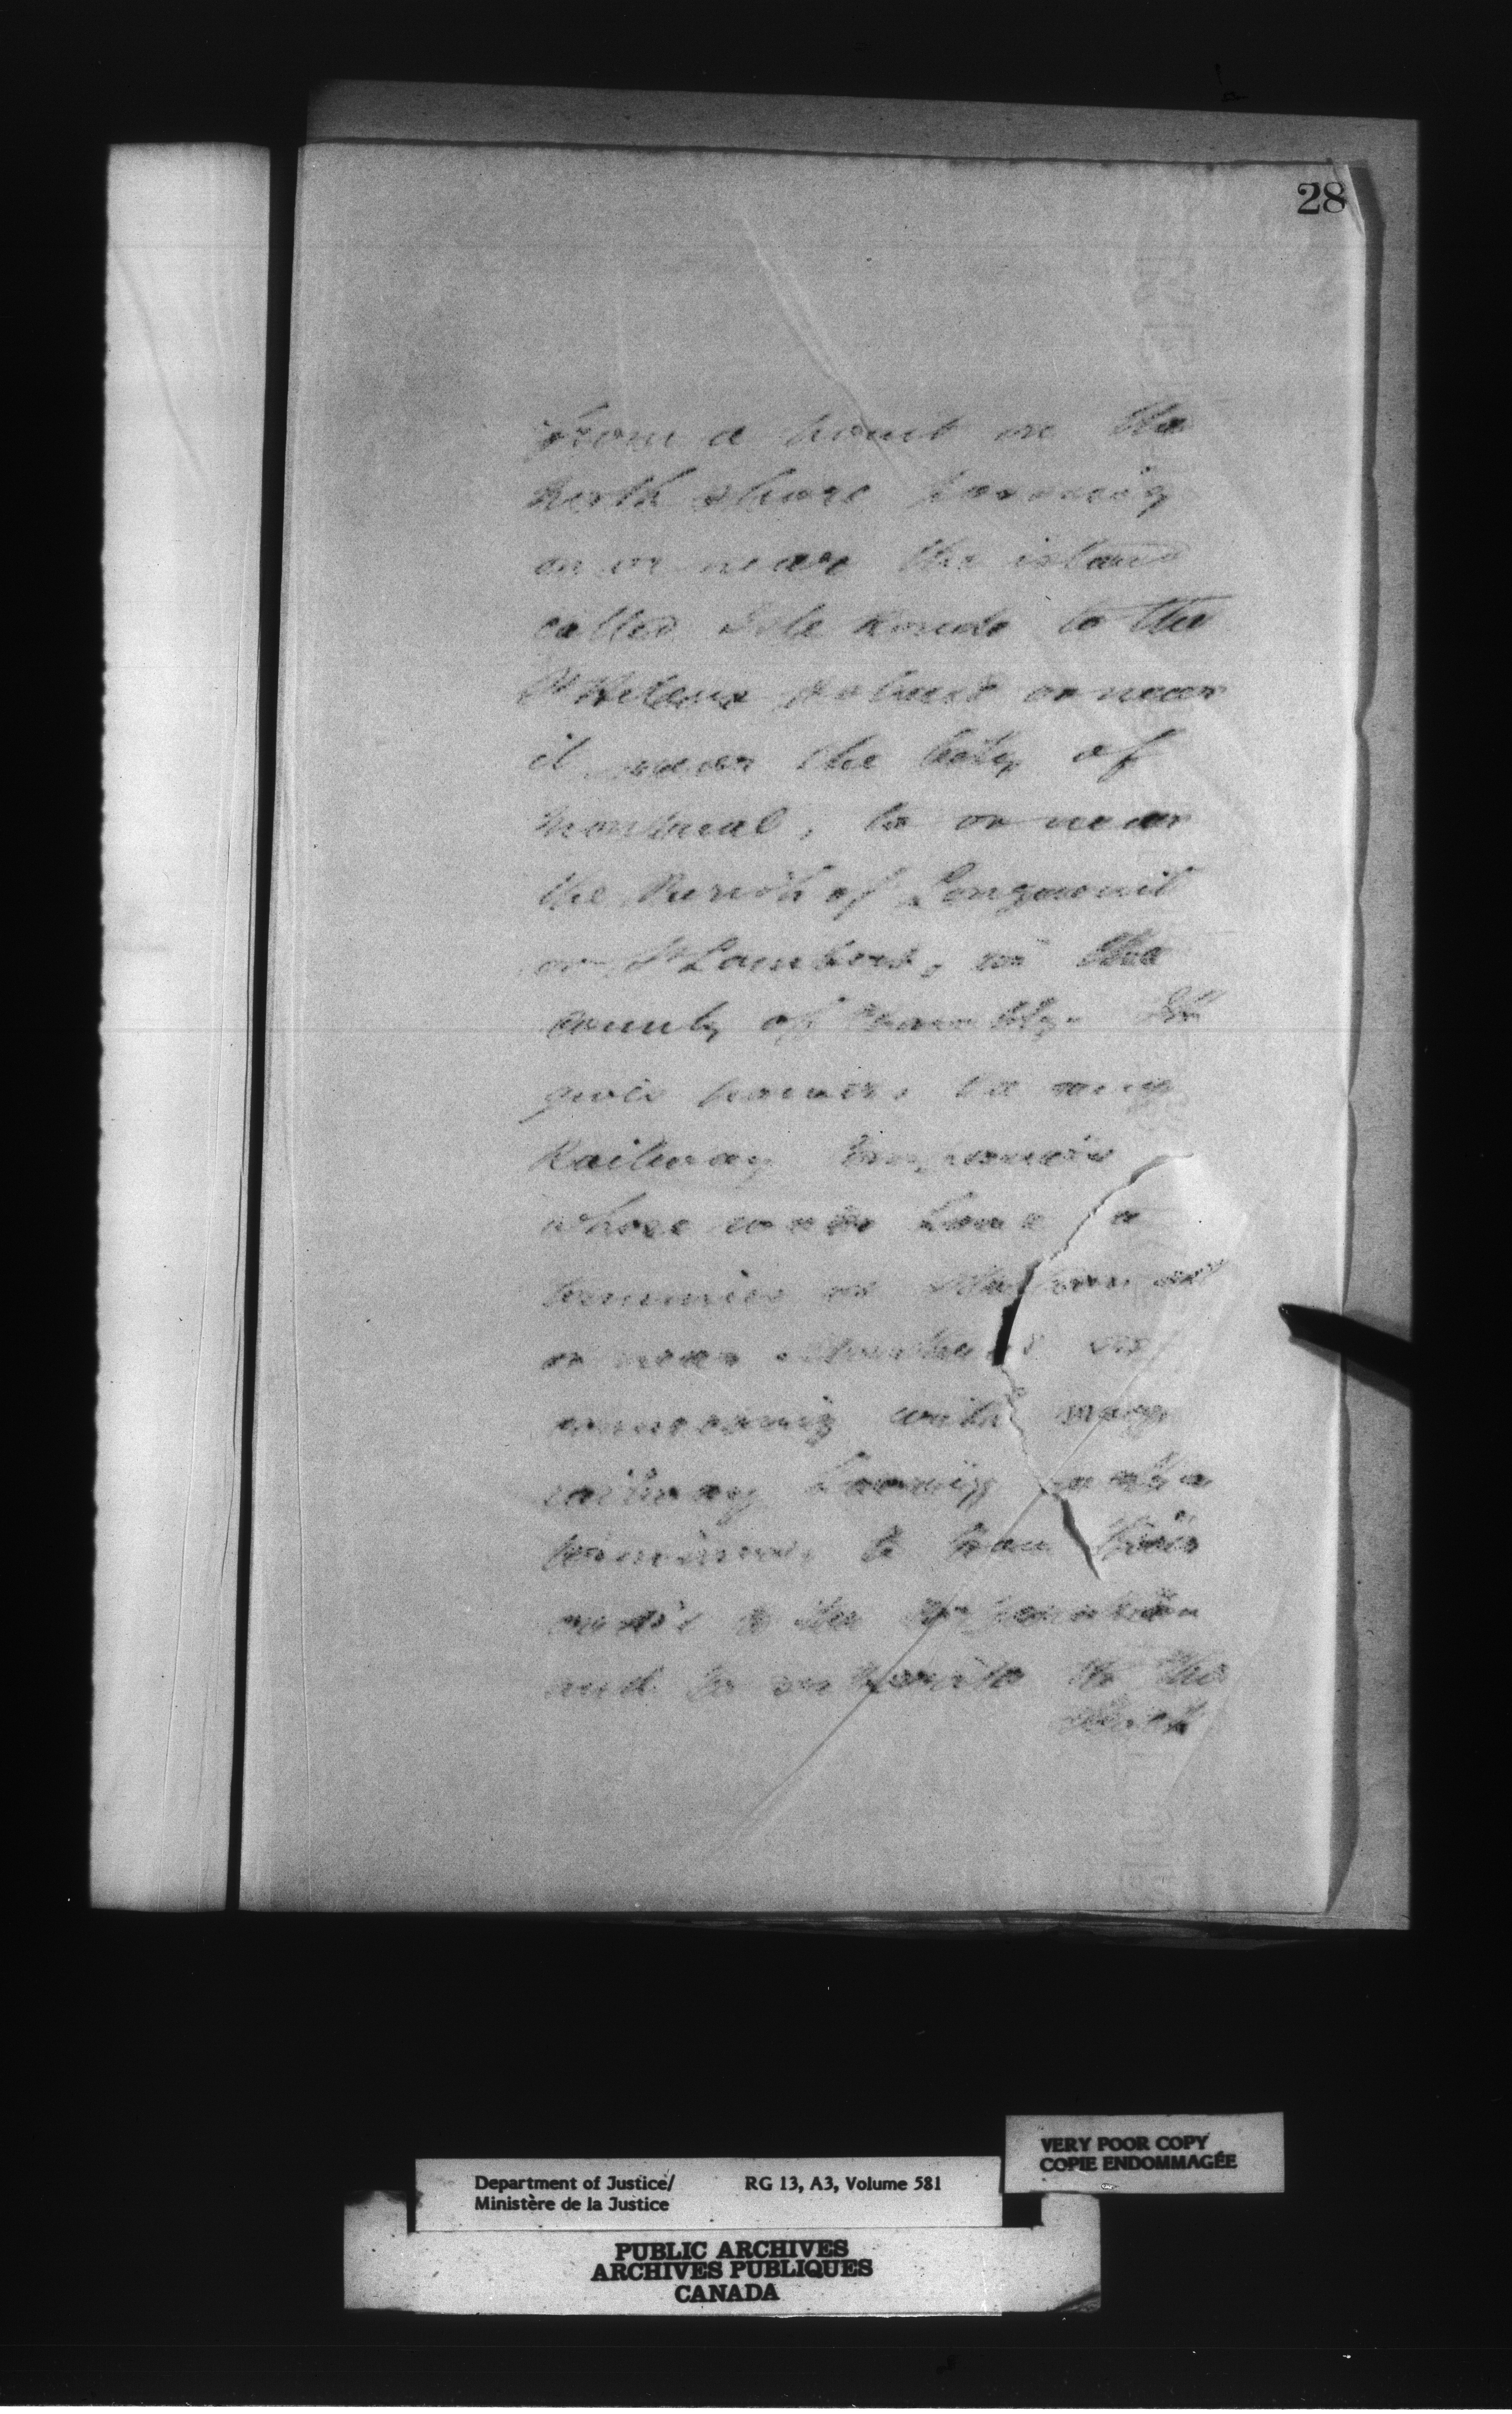 28
from a point on the
north shore passing
on or near the island
called Isle Ronde to the
St Helens Island or near
it near the City of
Montreal, to or near
the Parish of Longueuil
or St Lambert, in the
County of Chambly. It
gives powers to any
Railway Companies
whose roads have a
terminus or station at
or near Montreal or
connecting with any
railway having such a
terminus, to loan their
credit to the Corporation
and to subscribe to the
Stock
VERY POOR COPY
COPIE ENDOMMAGÉE
Department of Justice/ RG 13, A3, Volume 581
Ministère de la Justice
PUBLIC ARCHIVES
ARCHIVES PUBLIQUES
CANADA